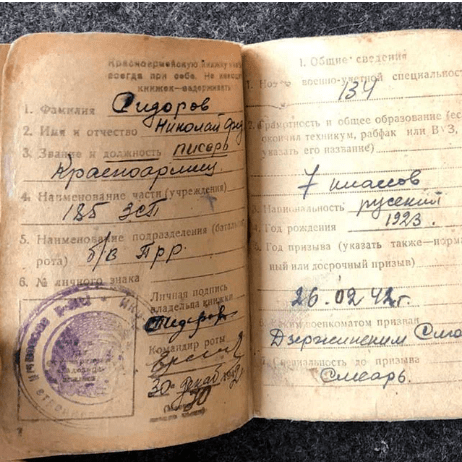 Красноармейскую книжку
всегда при себе. Не имеющих
книжек—задерживать
1. Фамилия Сидоров
2. Имя и отчество Николай
3. Звание и должность писарь
Красноармеец
4. Наименование части (учреждения)
185 ЗСП
5. Наименование подразделения (баталь-
рота) б/в Прр.
6. № личного знака
Личная подпись
владельца книжки
Сидоров
Командир роты
30
30
1. Общие сведения
1. военно-учетной специальнос
134
2. Грамотность и общее образование (ес
окончил техникум, рабфак или ВУЗ,
указать его название)
7 классов
3. Национальность русский
4. Год рождения 1923.
5. Год призыва (указать также—норм
ный или досрочный призыв)
26.02.42г.
6. Каким военкоматом призван
Дзержинским
7. Специальность до призыва
Слесарь.